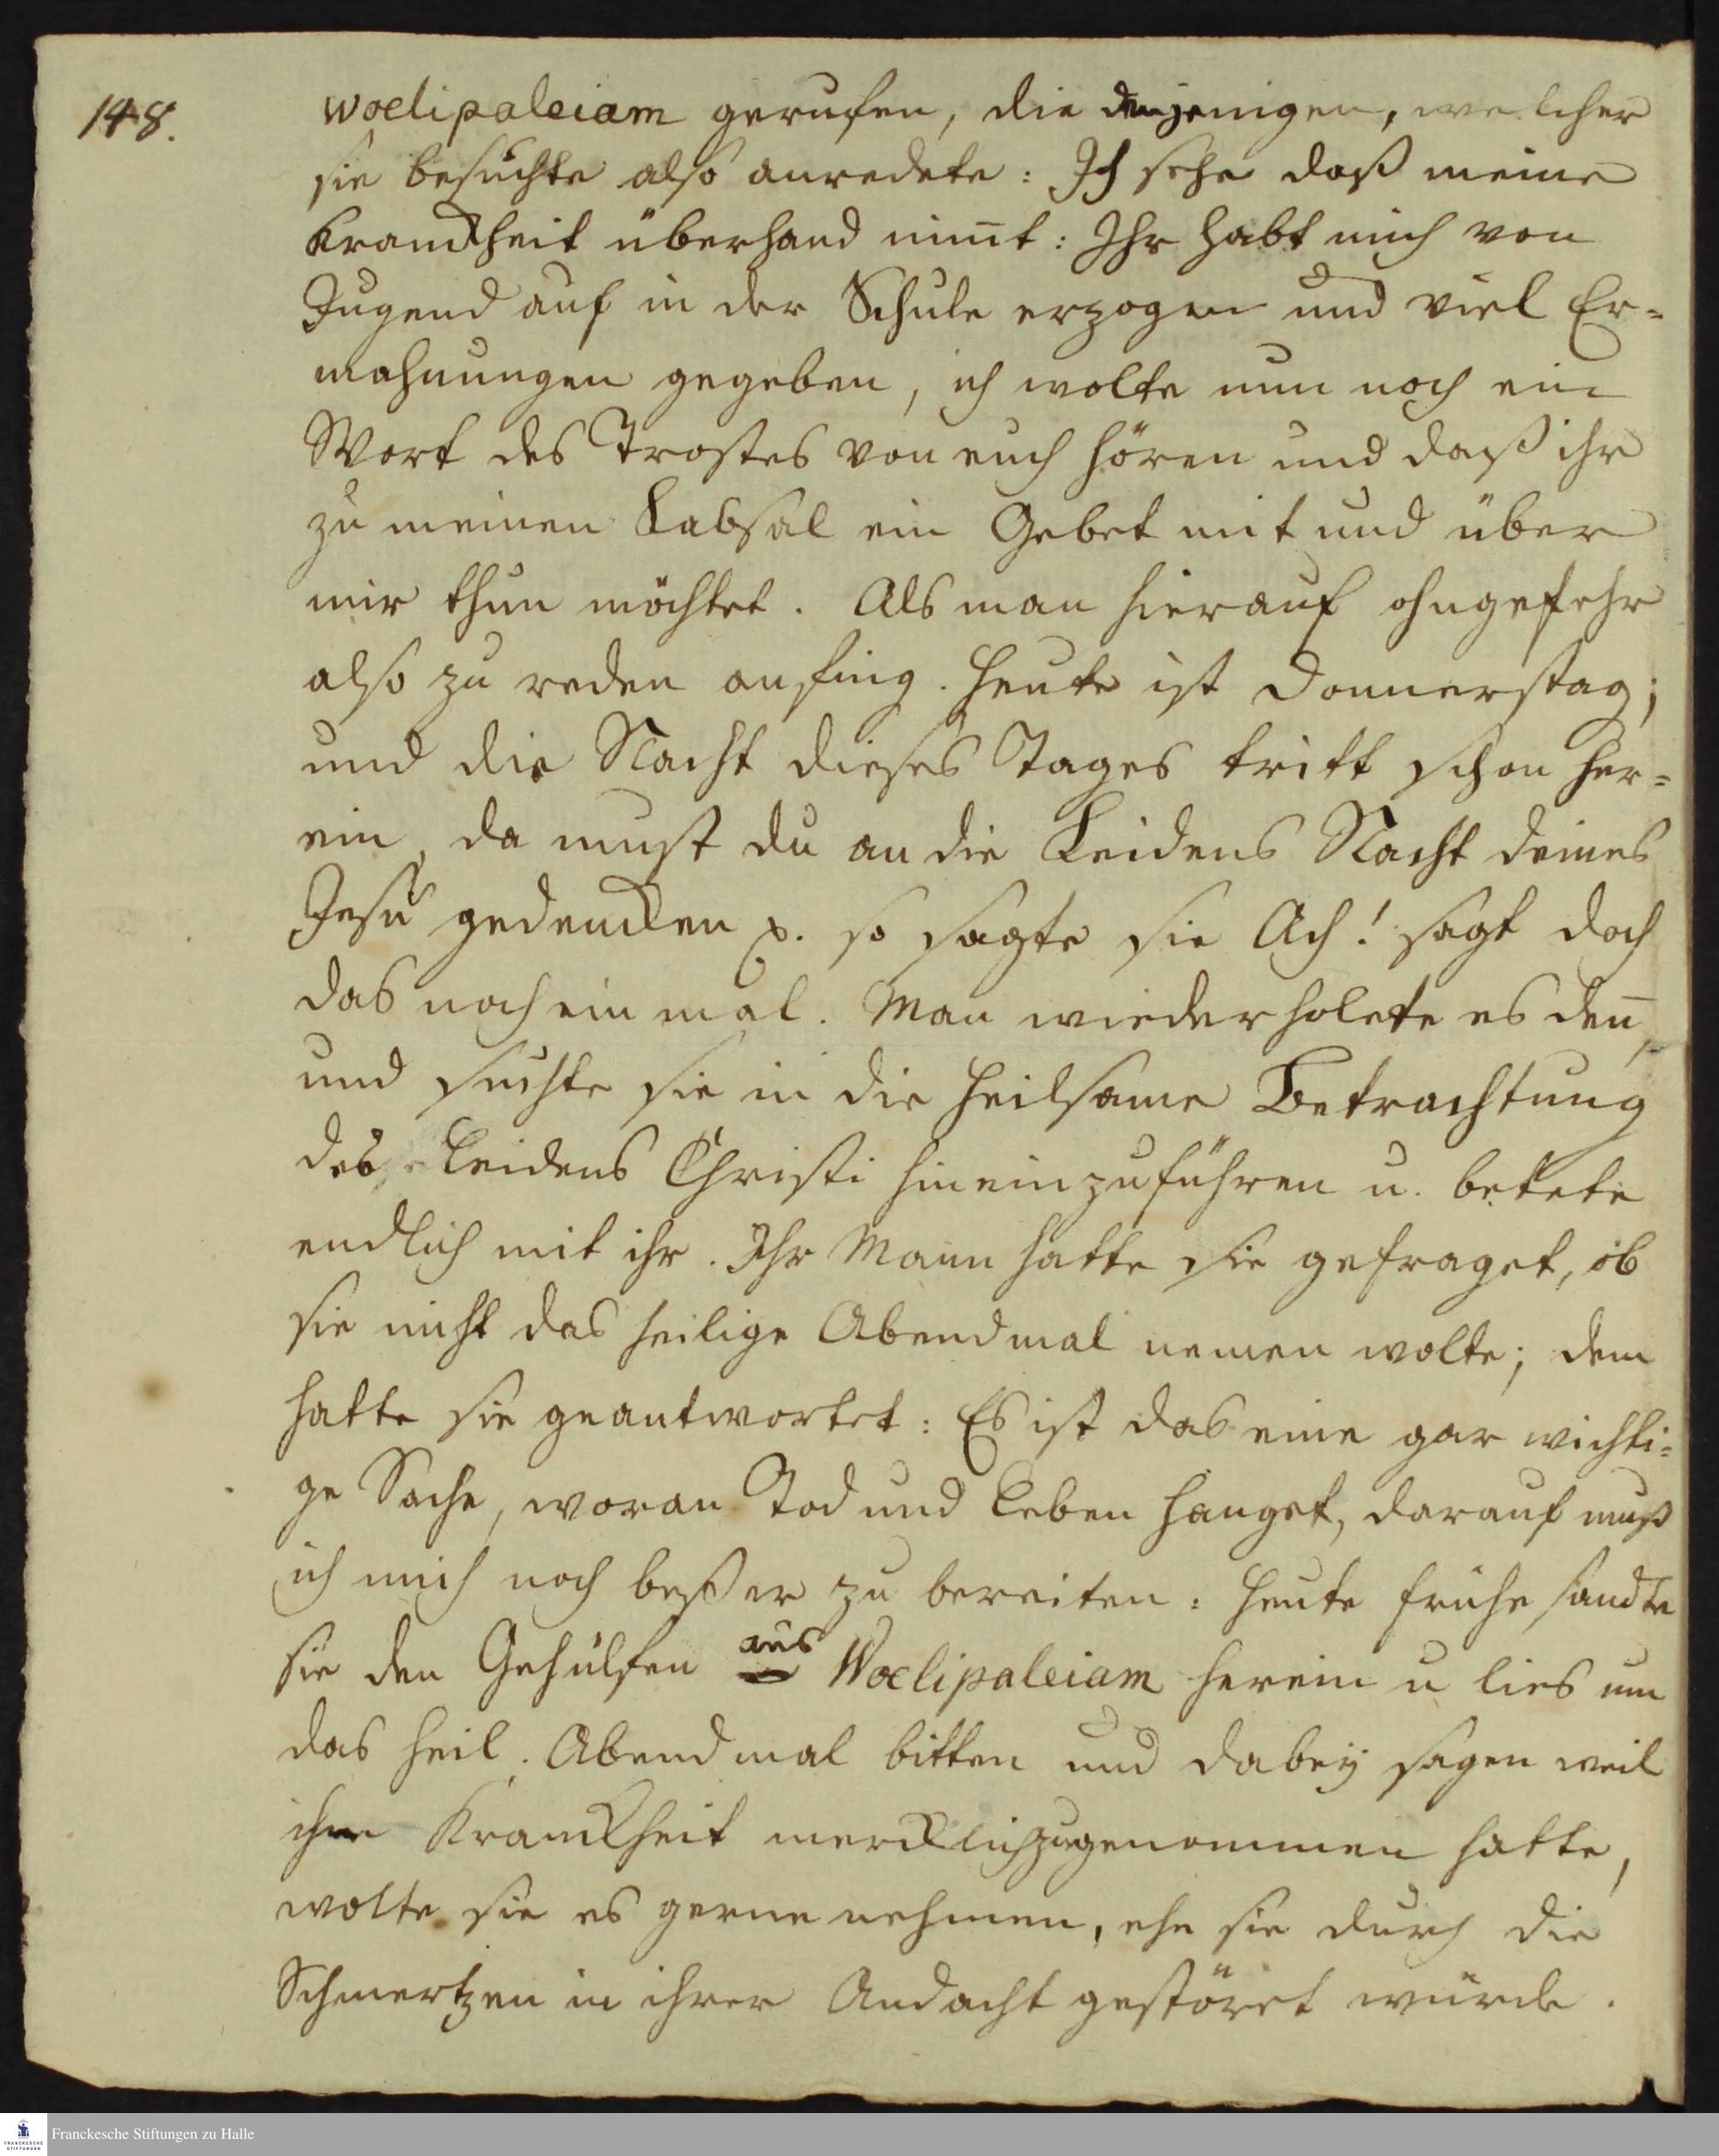 148.
woelipaleiam gerufen, die denjenigen, welcher
sie besuchte also anredete: Ich sehe daß meine
Kranckheit überhand nim̄t: Ihr habt mich von
Jugend auf in der Schule erzogen und viel Er=
mahnungen gegeben, ich wolte nun noch ein
Wort des Trostes von euch hören und daß ihr
zu meinen Labsal ein Gebet mit und über
mir thun möchtet. Als man hierauf ohngefehr
also zu reden anfing. Heute ist Donnerstag;
und die Nacht dieses Tages tritt schon her=
ein, da must du an die Leidens Nacht deines
Jesu gedencken p. so sagte sie Ach! sagt doch
das noch ein mal. Man wiederholete es den̄,
und suchte sie in die heilsame Betrachtung
des Leidens Christi hineinzuführen u. betete
endlich mit ihr. Ihr Mann hatte sie gefraget, ob
sie nicht das heilige Abendmal nemen wolte; dem
hatte sie geantwortet: Es ist das eine gar wichti=
ge Sache, woran Tod und Leben hanget, darauf muß
ich mich noch beßer zu bereiten: Heute frühe sandte
sie den Gehülfen aus Woelipaleiam herein u lies um
das heil. Abendmal bitten und dabey sagen weil
ihre Kranckheit mercklich zugenommen hatte,
wolte sie es gerne nehmen, ehe sie durch die
Schmertzen in ihrer Andacht gestöret würde.
Franckesche Stiftungen zu Halle